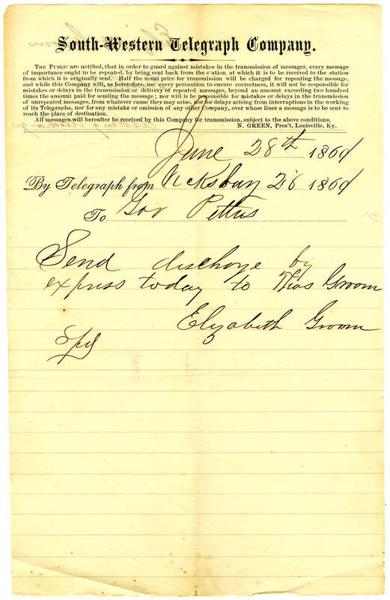 South-Western Telegraph Company.
The Public are notified, that in order to guard against mistakes in the transmission of messages, every message
of importance ought to be repeated, by being sent back from the station at which it is to be received to the station
from which it is originally sent. Half the usual price for transmission will be charged for repeating the message,
and while this Company will, as heretofore, use every precaution to ensure correctness, it will not be responsible for
mistakes or delays in the transmission or delivery of repeated messages, beyond an amount exceeding two hundred
times the amount paid for sending the message; nor will it be responsible for mistakes or delays in the transmission
of unrepeated messages, from whatever cause they may arise, nor for delays arising from interruptions in the working
of its Telegraphs, nor for any mistake or omission of any other Company, over whose lines a message is to be sent to
reach the place of destination.
All messages will hereafter be received by this Company for transmission, subject to the above conditions.
N. GREEN, Pres't, Louisville, Ky.
June 28th 1860
By Telegraph from Vicksburg 28 1860
To Gov Pettus
Send discharge by
express today to Thos Groom
Elizabeth Groom